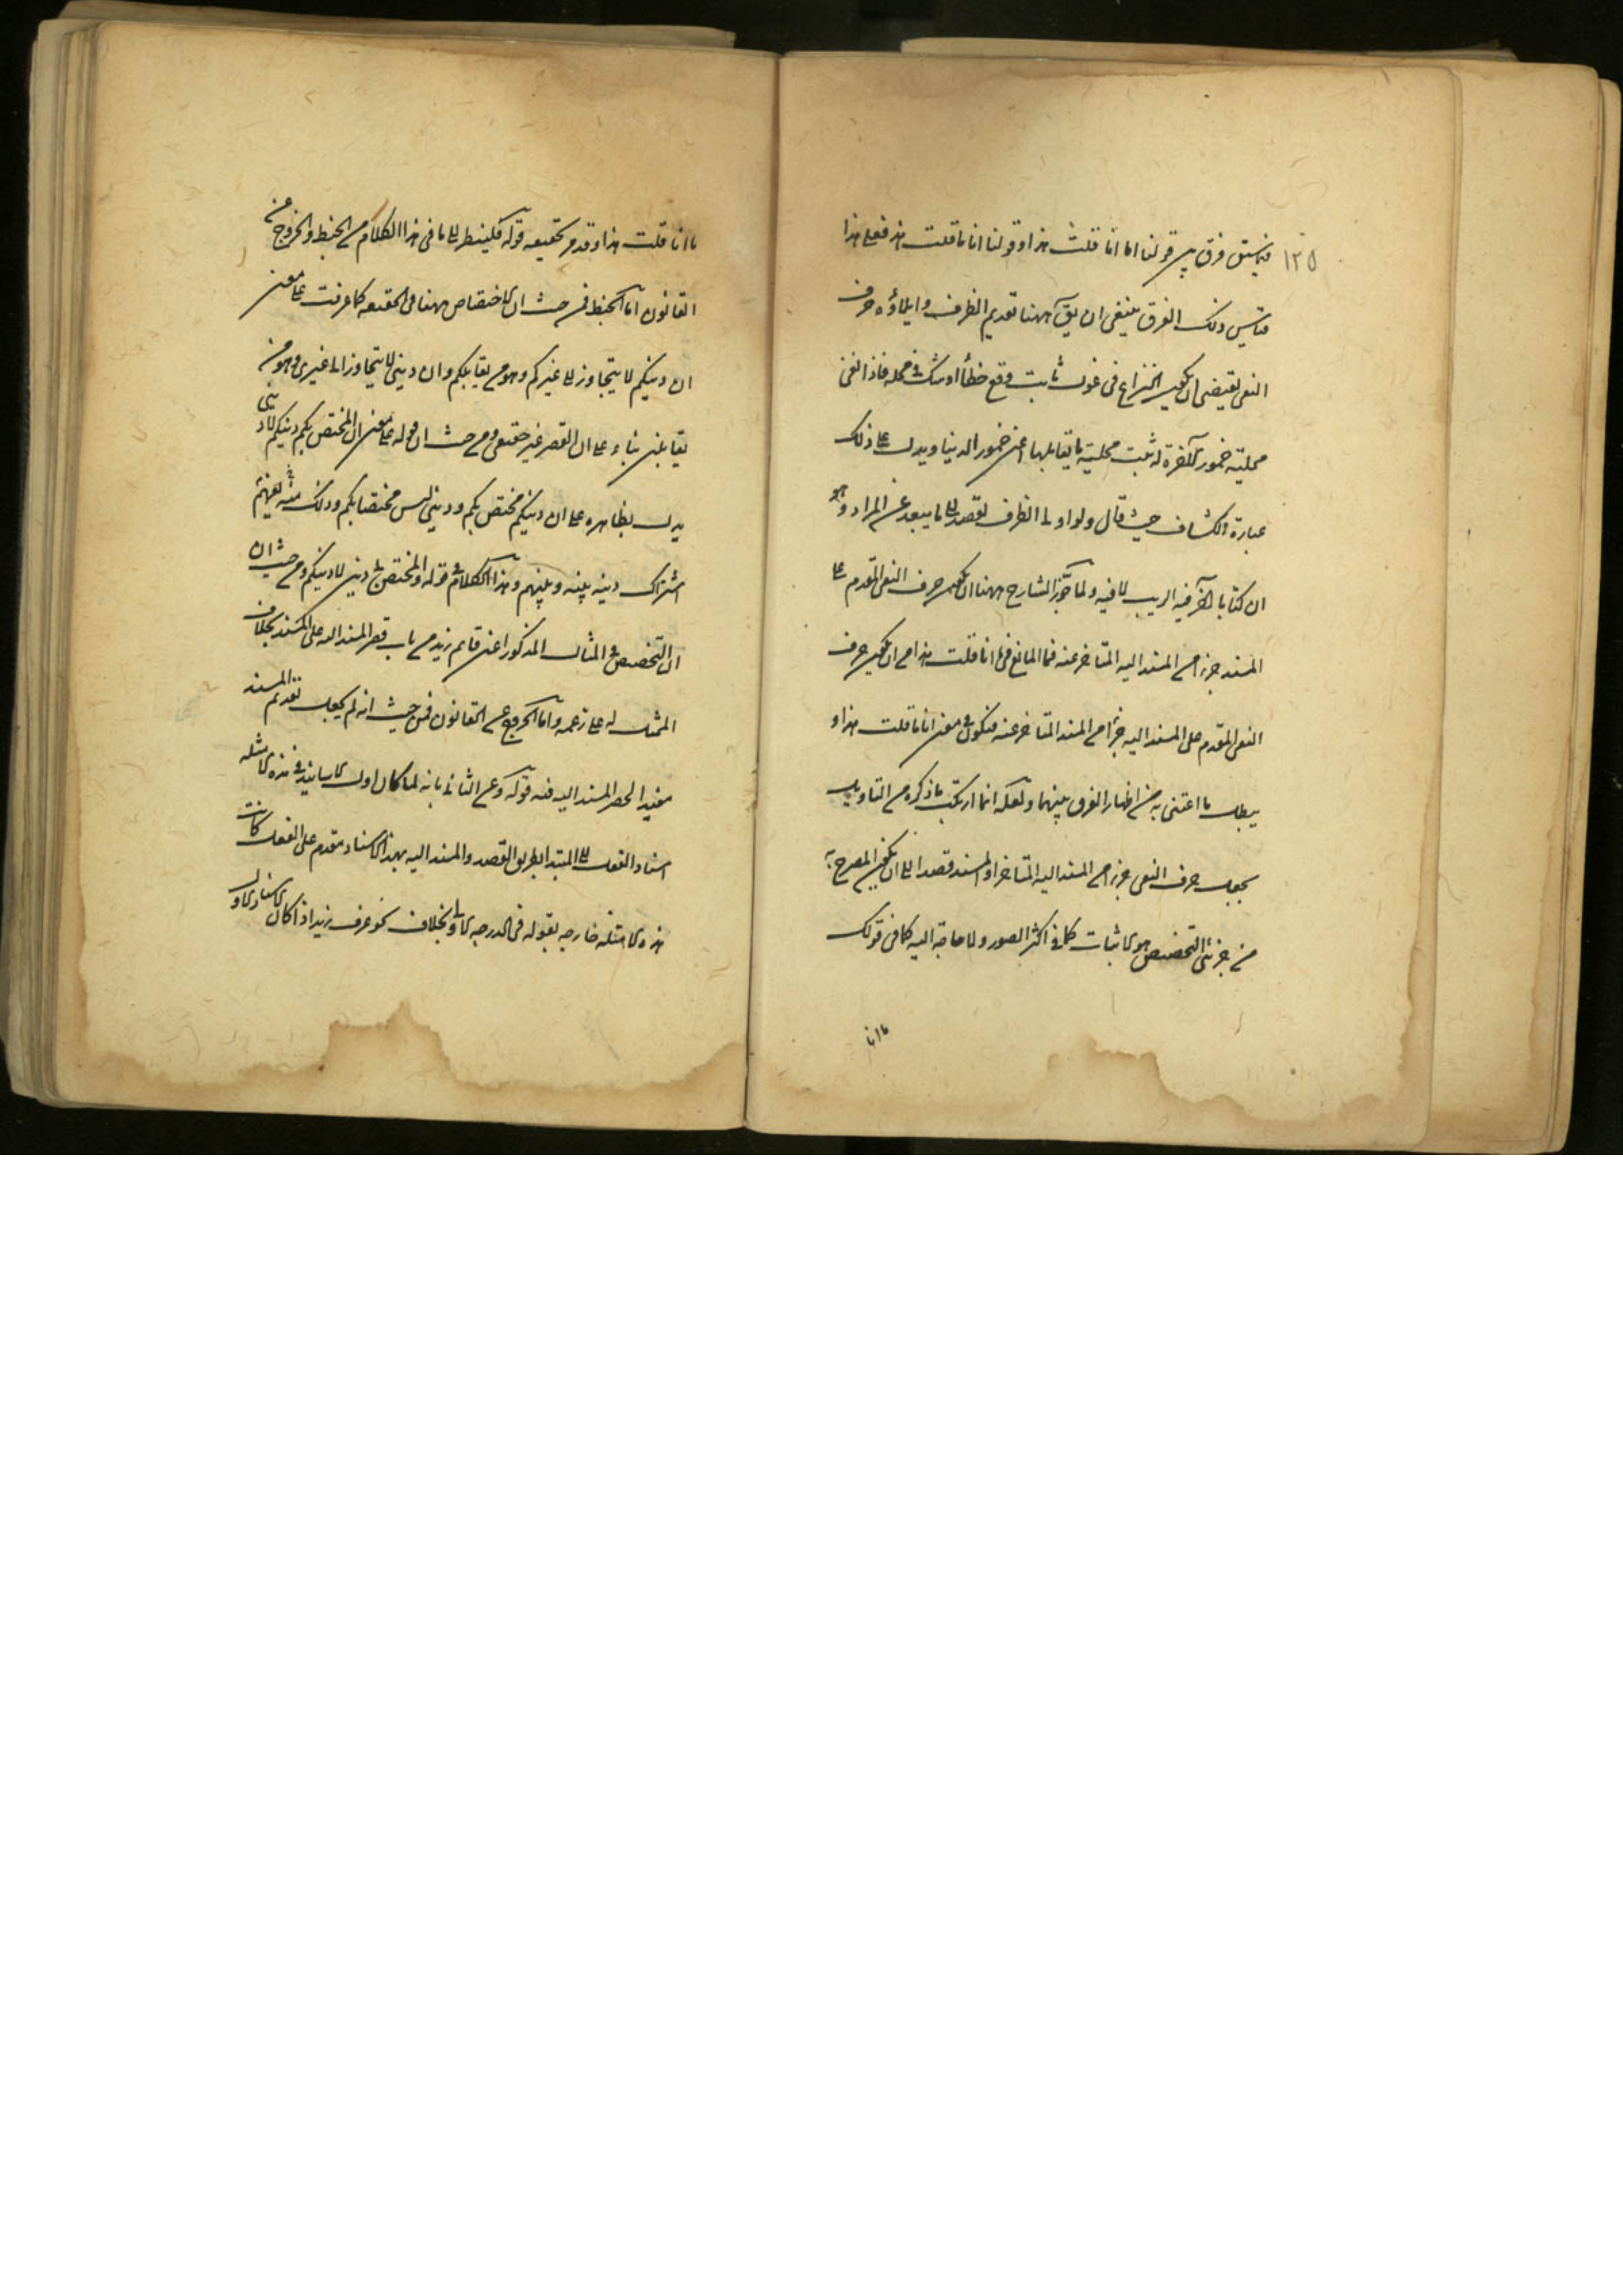 ١٢٥
فيما سبق فرق بين قولنا اما انا قلت هذا وقولنا انا ما قلت هذا فعلى هذا
قياس ذلك الفرق ينبغي ان يق ههنا تقديم الظرف وايلاؤه حرف
النفي يقتضي ان يكون النزاع في غول ثابت وقع خطأ او شك في محله فاذا نفى
محلية خمور الآخرة له ثبت محلية ما يقابلها اعني خمور الدنيا ويدل على ذلك
عبارة الكشاف حيث قال ولو اولى الظرف لقصد الى ما يبعد عن المراد وهو
ان كتابا آخر فيه الريب لا فيه ولما جوز الشارح ههنا ان يكون حرف النفي المتقدم على
المسند جزءا من المسند اليه المتاخر عنه فما المانع في ما انا قلت هذا من ان يكون حرف
النفي المقدم على المسند اليه جزءا من المسند المتاخر عنه فيكون في معنى انا ما قلت هذا و
يبطل ما اعتنى به من اظهار الفرق بينهما ولعله انما ارتكب ما ذكره من التاويل
بجعل حرف النفي جزءا من المسند اليه المتاخر او المسند قصدا الى ان يكون المصرح به
من جزئي التخصيص هو الاثبات كما في اكثر الصور ولا حاجة اليه كما في قولك
ما انا
ما انا قلت هذا وقد مر تحقيقه قوله فلينظر الى ما في هذا الكلام من الخبط والخروج عن
القانون اما الخبط فمن حيث ان الاختصاص ههنا في الحقيقه كما عرفت على معنى
ان دينكم لا يتجاوز الى غيركم وهو من يقابلكم وان ديني لا يتجاوز الى غيري وهو من
يقابلني بناء على ان القصر غير حقيقي ومن حيث ان قوله على معنى ان المختص بكم دينكم لا ديني
يدل بظاهره على ان دينكم مختص بكم وديني ليس مختصا بكم وذلك منه يفهم
اشتراك دينه بينه وبينهم وهذا الكلام في قوله والمختص بي ديني لا دينكم ومن حيث ان
ان التخصيص في المثال المذكور اعني قائم زيد من باب قصر المسند اليه على المسند بخلاف
الممثل له على زعمه واما الخروج عن القانون فمن حيث انه لم يجعل تقديم المسند
مفيدا لحصر المسند اليه فيه قوله وعن الثاني بانه لما كان اول الاسانيد في هذه الامثله
اسناد الفعل الى المبتدا بطريق القصد والمسند اليه بهذا الاسناد مقدم على الفعل كانت
هذه الامثله خارجه بقوله في الدرجه الاولى بخلاف نحو عرف زيد اذا كان الاسناد الاول